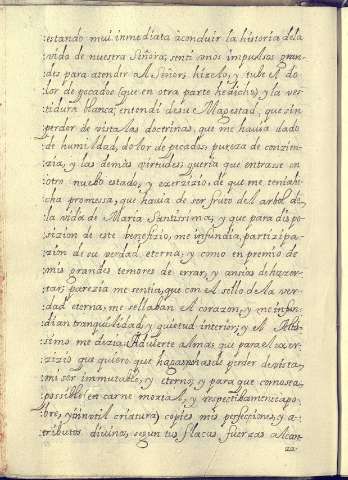 estando mui inmediata à conduir la historia dela
vida de nuestra Señora, senti unos impulsos gran-
des para atender al Señor: hizelo, y tube el do
lor de pecados (que en otra parte hedicho) y la ves-
tidura blanca; entendi desu Magestad, que sin
perder de vista las doctrinas, que me hauia dado
de humildad, dolor de pecados, pureza de conzien-
zia, y las demàs virtudes; queria que entrasse en
otro nuebo estado, y exerzizio, de que me teniahe-
cha promessa, que hauia de ser fruto del arbol de
la vida de Maria Santissima, y que para dispo-
sizion de este benefizio, me infundia, partizipa-
zion de su verdad eterna; y como en premio de
mis grandes temores de errar, y ansias de hazer
tar; parezia me sentia, que con el sello de la ver-
dad eterna, me sellaban el corazon, y me infun-
dian tranquilidad, y quietud interior; y el Altis-
simo me dezia: Aduierte alma, que para el exer-
zizio que quiero que hagas, no has de perder de vista,
mi ser immutable, y eterno; y para que como sea
possible en carne mortal, y respectibamente a po-
bre, y inutil criatura; copies mis perfecciones, y a-
tributos divinos, segun tus flacas fuerzas alcan-
za-